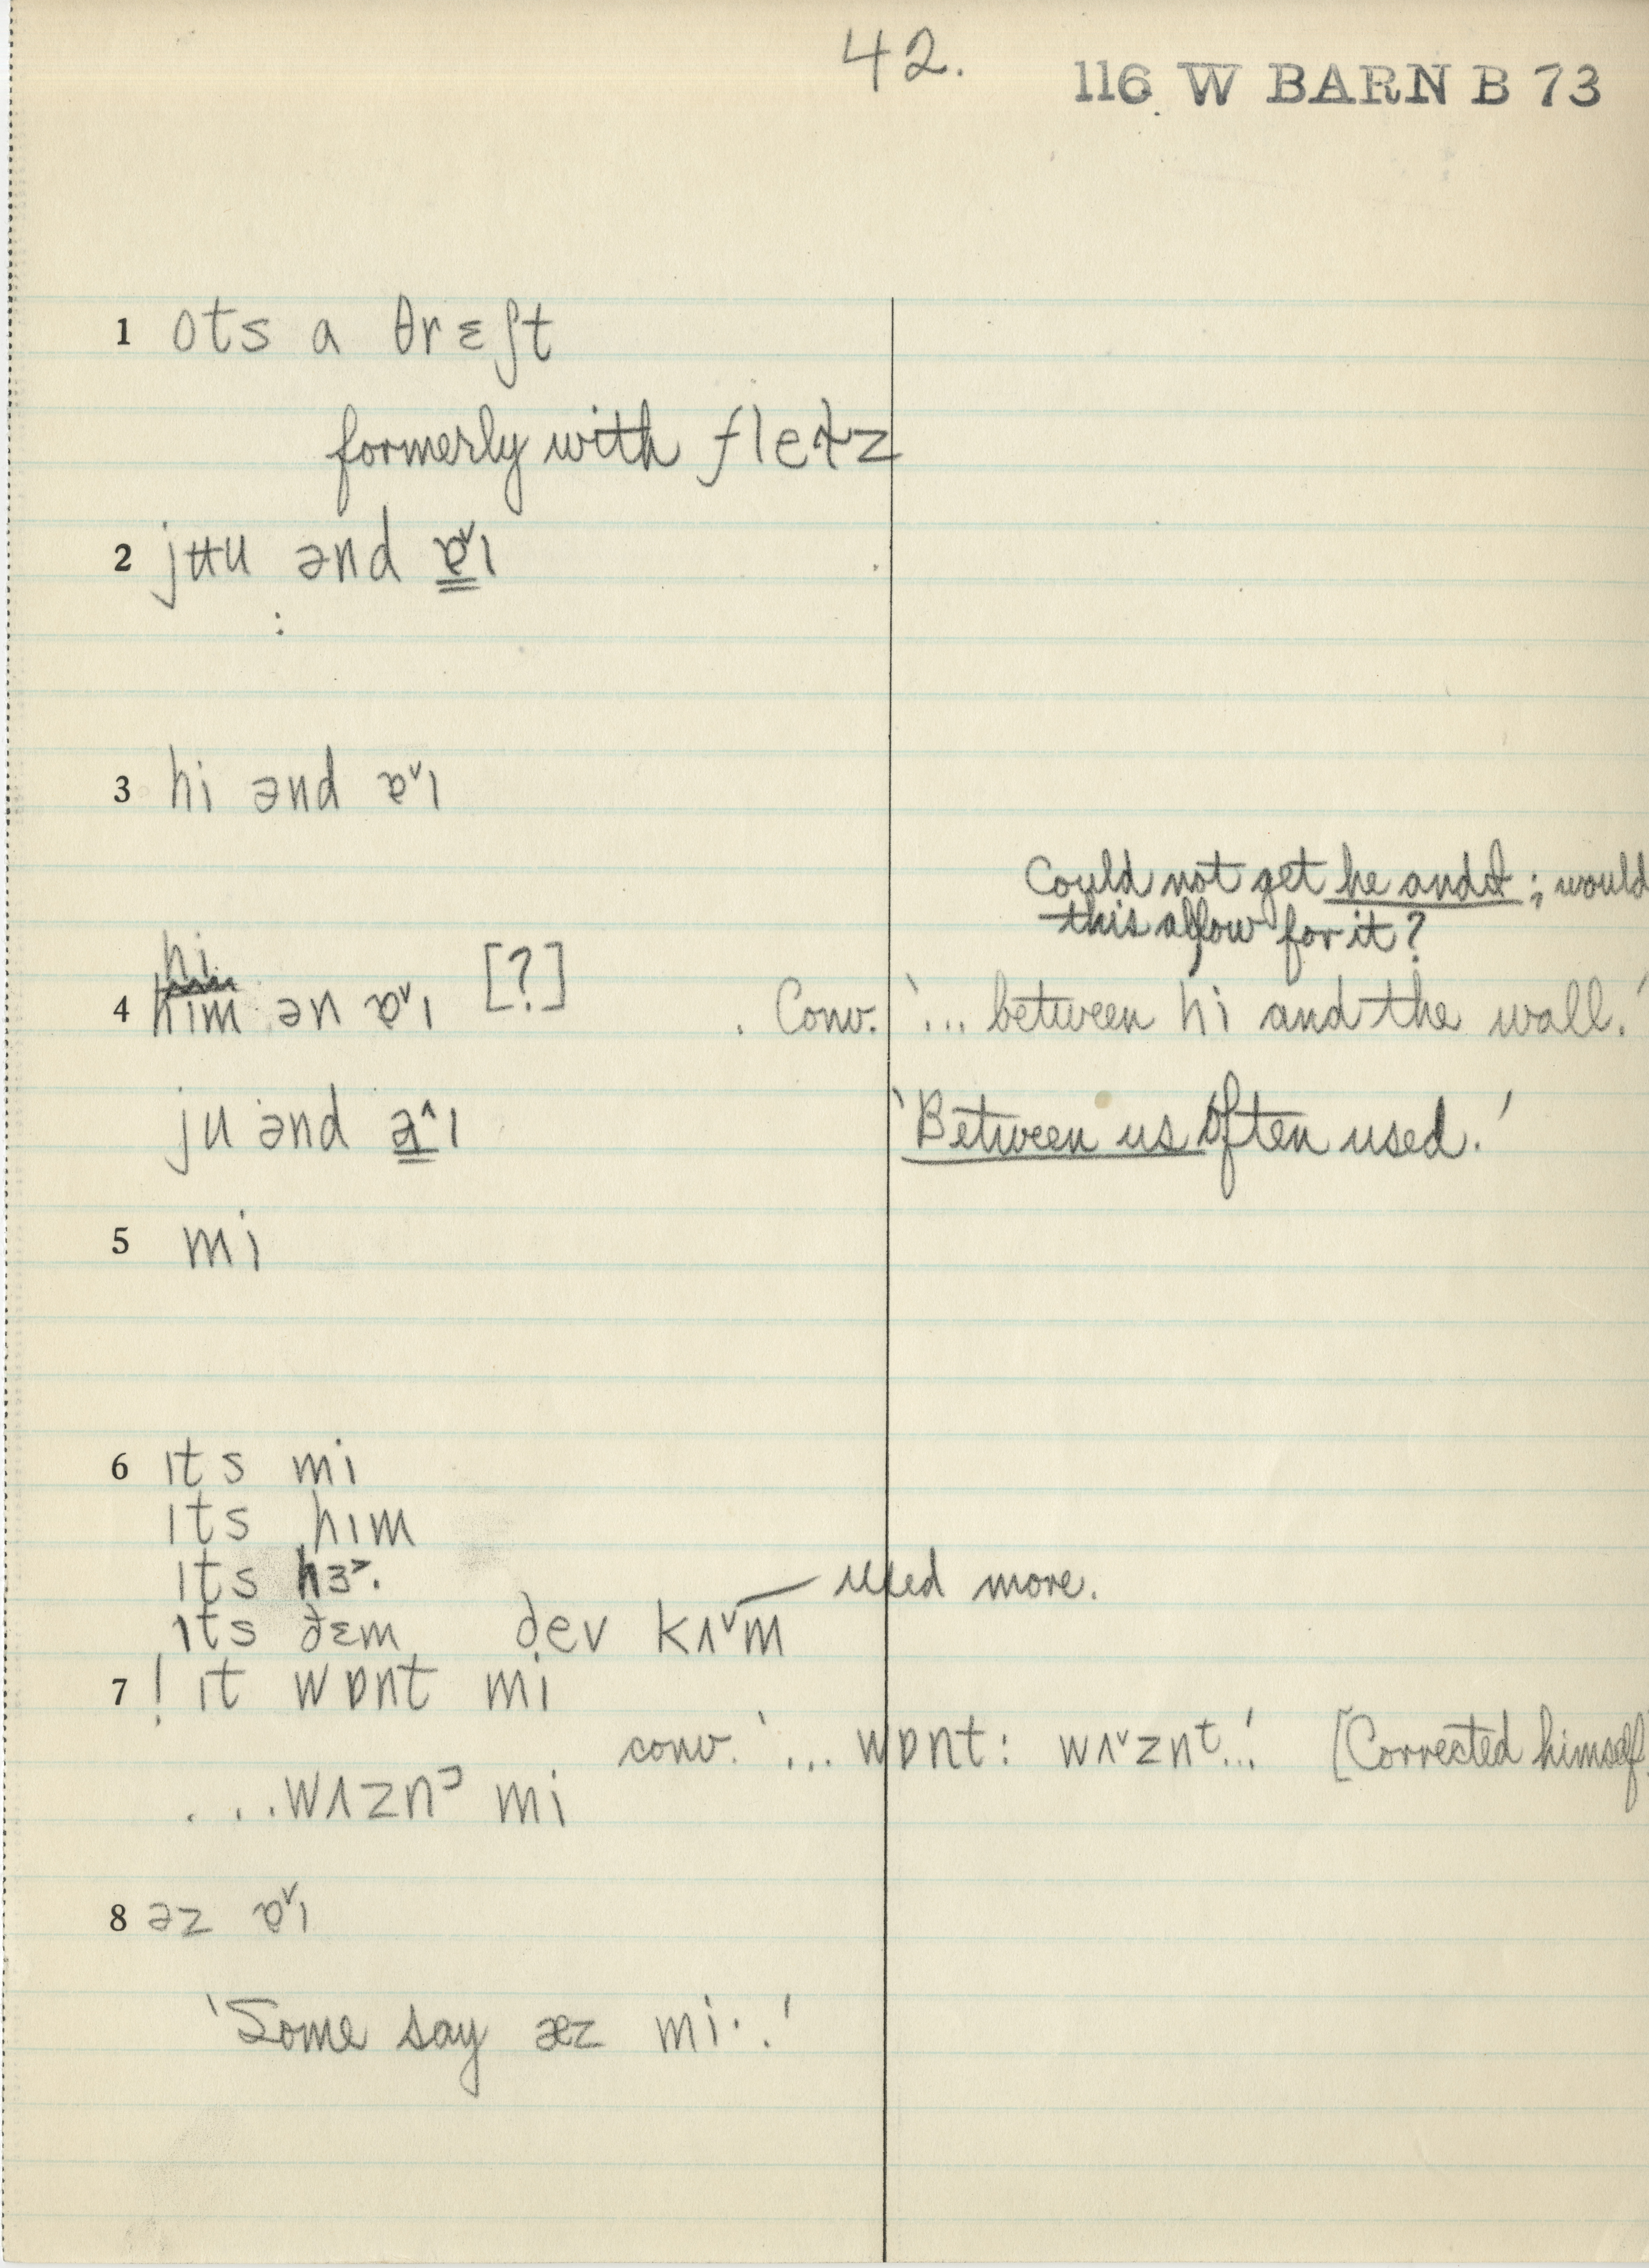 42.
116 W BARN B 73
1 ots a θrɛʃt
formerly with fleɫz
2 jʉu ənd ɐˇɪ
3 hi ənd ɐˇɪ
Could not get he and I; would
this allow for it?
hi
4 him ən ɐˇɪ [?] . Conv. '... between hi and the wall.'
ju ənd a^ɪ 'Between us often used.'
5 mi
6 ɪts mi
ɪts hɪm
ɪts hɜ˃.
need more.
ɪts ðɛm ðev kʌˇm
7 ! ɪt wɒnt mi
conv. '... wɒnt: wʌˇznt...' [Corrected himself]
. . . wʌzn mi
8 əz ɐˇɪ
'Some say æz mi·.'